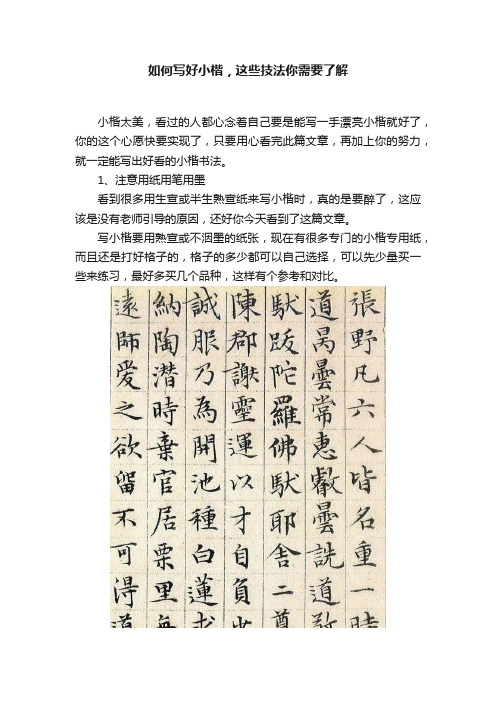 如何写好小楷，这些技法你需要了解
小楷太美，看过的人都心念着自己要是能写一手漂亮小楷就好了，
你的这个心愿快要实现了，只要用心看完此篇文章，再加上你的努力，
就一定能写出好看的小楷书法。
1、注意用纸用笔用墨
看到很多用生宣或半生熟宣纸来写小楷时，真的是要醉了，这应
该是没有老师引导的原因，还好你今天看到了这篇文章。
写小楷要用熟宣或不洇墨的纸张，现在有很多专门的小楷专用纸，
而且还是打好格子的，格子的多少都可以自己选择，可以先少量买一
些来练习，最好多买几个品种，这样有个参考和对比。
張野凡六人皆名重一時
道昺曇常惠叡曇詵道敬
馱跋陀羅佛馱耶舍二尊
陳郡謝靈運以才自負少
誠服乃為開池種白蓮求
納陶潛時棄官居栗里每
遠師愛之欲留不可得道